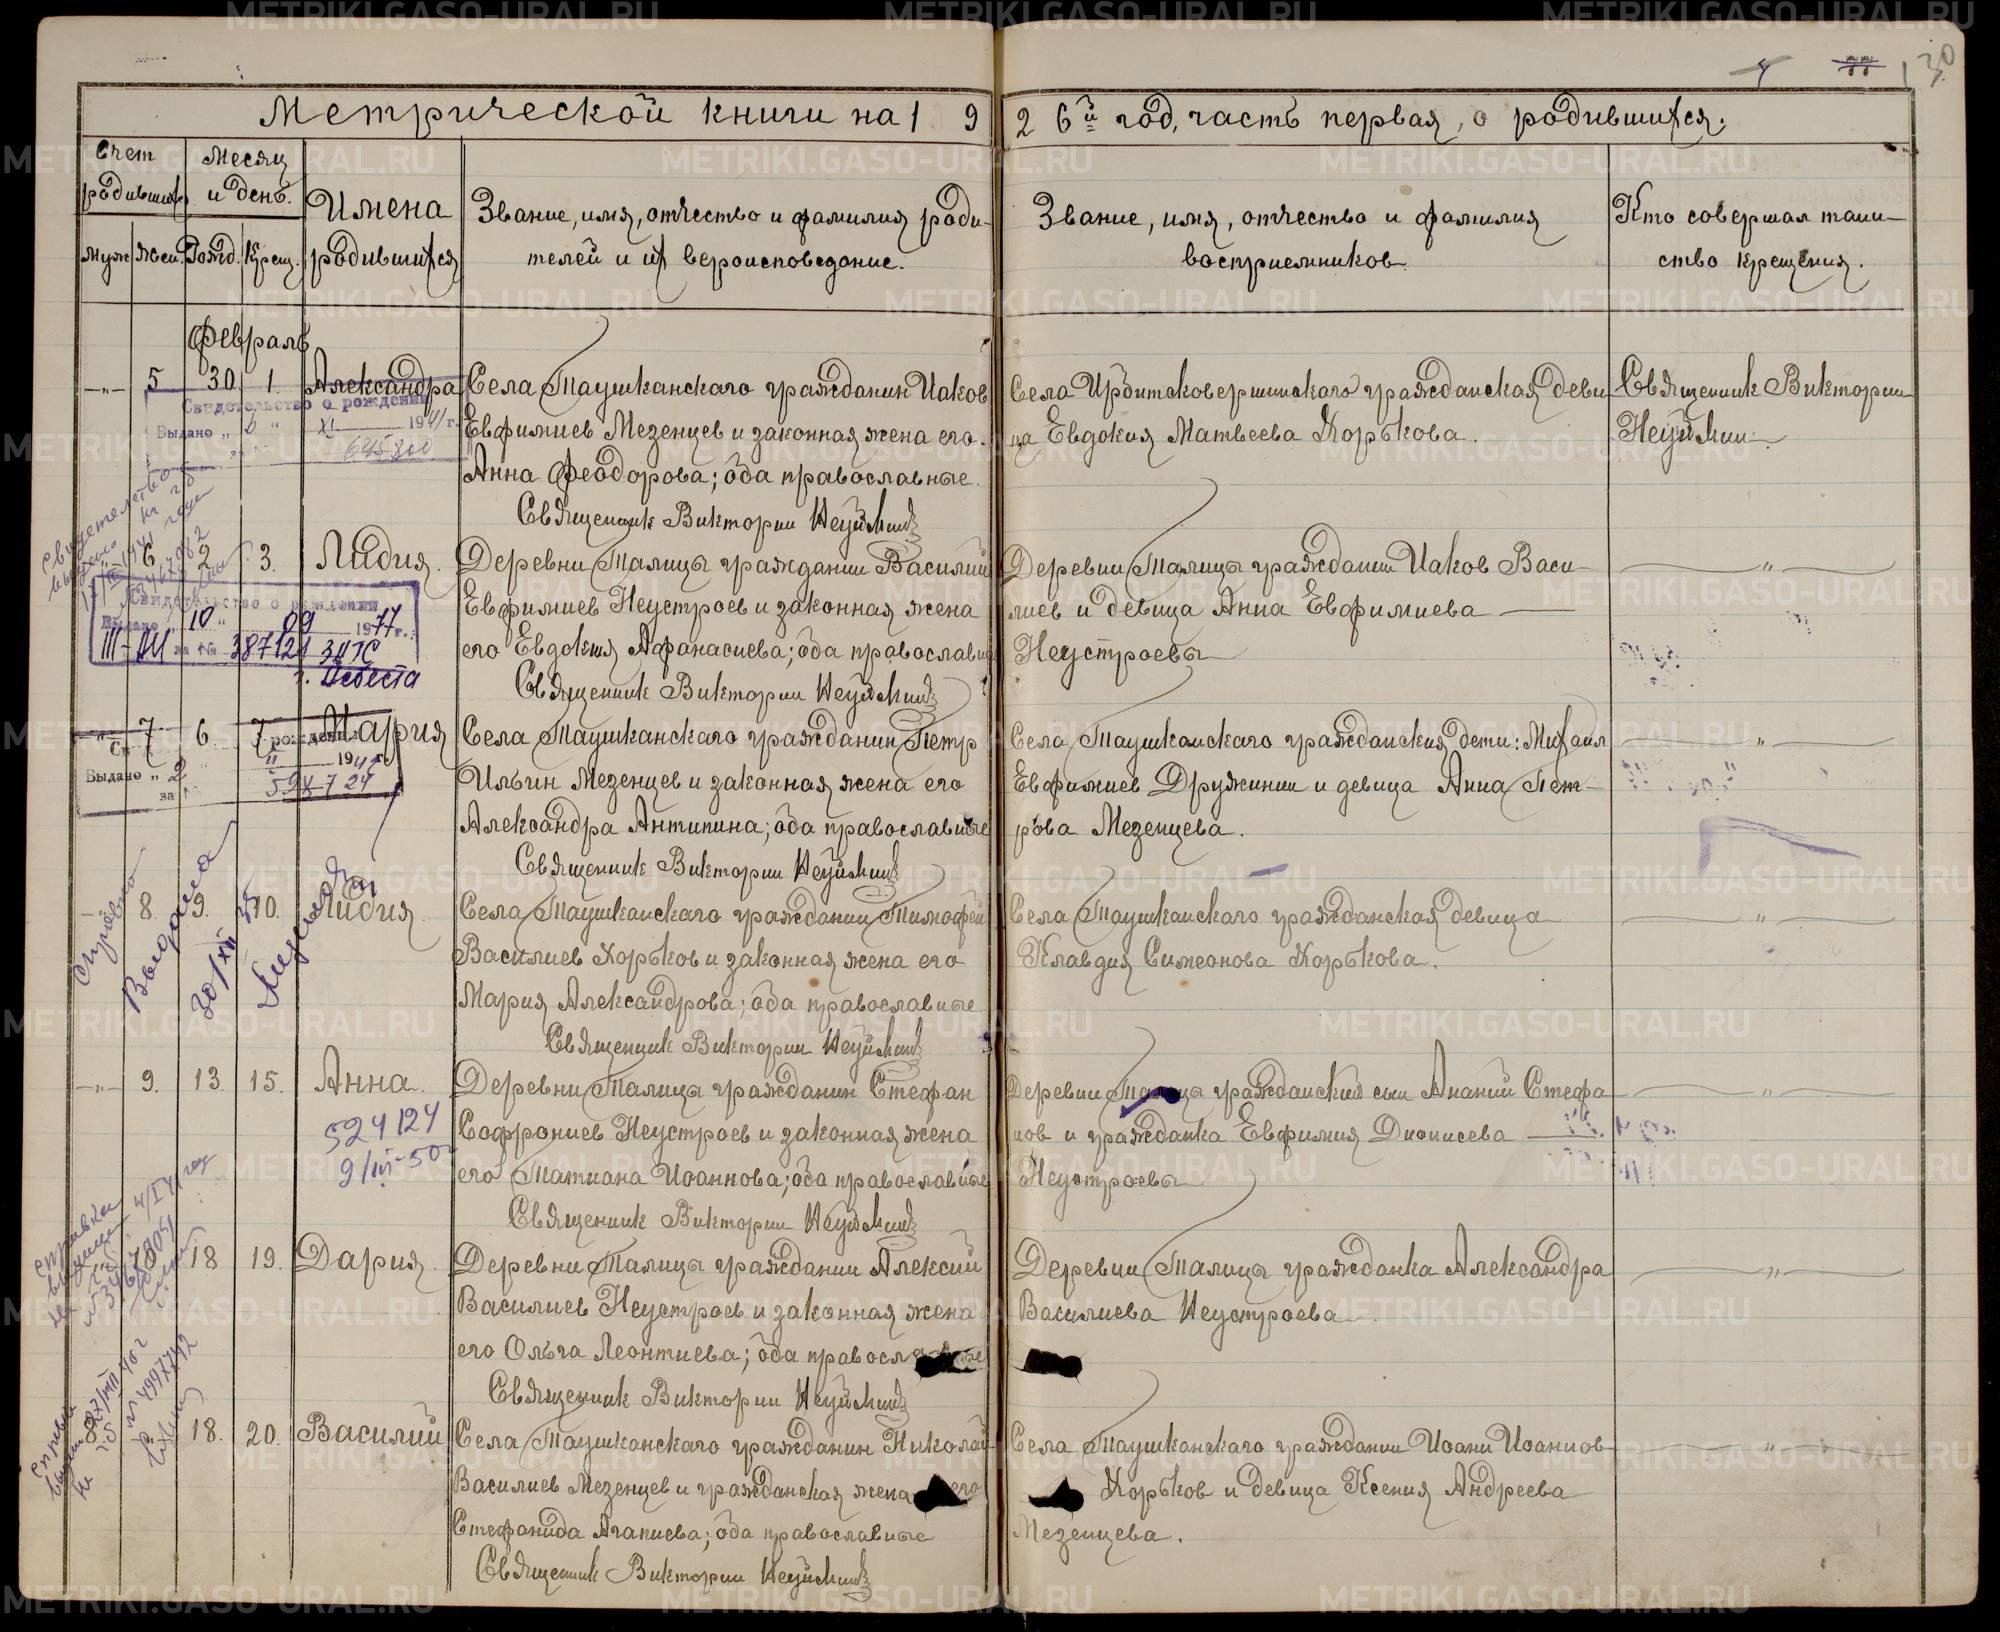 130
Метрической книги на 1926й год, часть первая, о родившихся.
Счет родившихся
муж. жен.
Месяц и день.
Рожд. Крещ.
Имена родившихся
Звание, имя, отчество и фамилия роди-
телей и их вероисповедание.
Звание, имя, отчество и фамилия
восприемников.
Кто совершал таин-
ство крещения.
Февраль
-„- 5 30. 1. Александра
Села Таушканскаго гражданин Иаков
Евфимиев Мезенцев и законная жена его.
Анна Феодорова; оба православные.
Священник Викторин Неуймин
Села Ирбитсковершинскаго гражданская деви
ца Евдокия Матвеева Хорькова.
Священник Викторин
Неуймин.
Свидетельство о рождении
Выдано „ 6 „ XI 1941 г.
645800
6 2 3. Лидия.
Деревни Талицы гражданин Василий
Евфимиев Неустроев и законная жена
его Евдокия Афанасиева; оба православны
Священник Викторин Неуймин
Деревни Талицы гражданин Иаков Васи-
лиев и девица Анна Евфимиева
Неустроевы
-„-
Свидетельство о рождении
Выдано „ 10 „ 09 1977 г.
за № 387121 ЗАГС
г. Асбеста
7 6. 7 Мария
Села Таушканскаго гражданин Петр
Ильин Мезенцев и законная жена его
Александра Антипина; оба православные
Священник Викторин Неуймин
Села Таушканскаго гражданския дети: Михаил
Евфимиев Дружинин и девица Анна Пет-
рова Мезенцева.
-„-
рождении
Выдано „ 2 „ 194
за
598724
8. 9. 10. Лидия.
Села Таушканскаго гражданин Тимофей
Василиев Хорьков и законная жена его
Мария Александрова; оба православные
Священник Викторин Неуймин
Села Таушканскаго гражданская девица
Клавдия Симеонова Хорькова.
-„-
Справка
Выдана
20/XII 35
-„- 9. 13. 15. Анна.
Деревни Талицы гражданин Стефан
Софрониев Неустроев и законная жена
его Татиана Иоаннова; оба православные
Священник Викторин Неуймин
Деревни Талицы гражданский сын Ананий Стефа
нов и гражданка Евфимия Дионисева
Неустроевы
-„-
524124
9/III-50
18 19. Дария.
Деревни Талицы гражданин Алексий
Василиев Неустроев и законная жена
его Ольга Леонтиева; оба православные
Священник Викторин Неуймин
Деревни Талицы гражданка Александра
Василиева Неустроева
-„-
18. 20. Василий
Села Таушканскаго гражданин Николай
Василиев Мезенцев и гражданская жена его
Стефанида Агапиева; оба православные
Священник Викторин Неуймин
Села Таушканскаго гражданин Иоанн Иоаннов
Хорьков и девица Ксения Андреева
Мезенцева.
-„-
METRIKI.GASO-URAL.RU